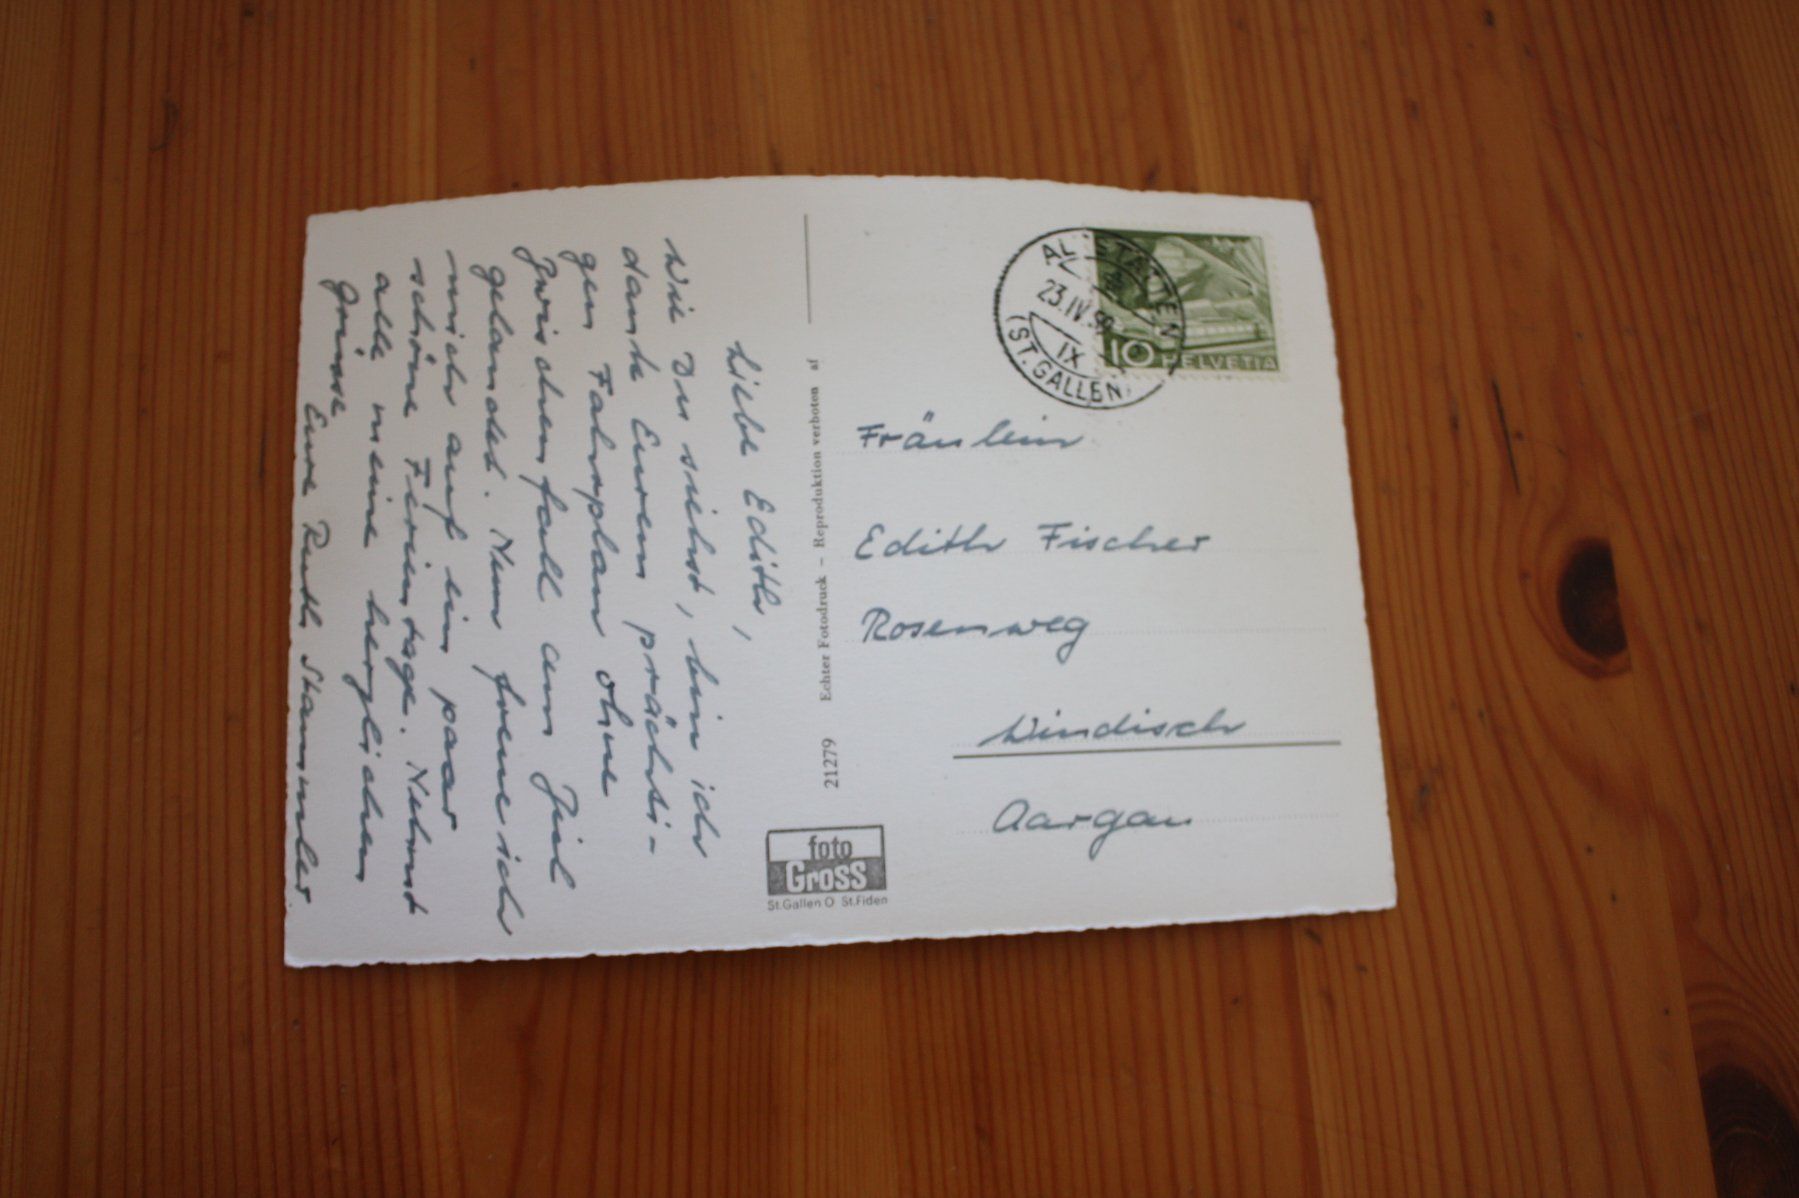 Liebe Edith,
Wie Du siehst, bin ich
dank Eurem prächti-
gen Fahrplan ohne
Zwischenfall am Ziel
gelandet. Nun freue ich
mich auf ein paar
schöne Ferientage. Nehmt
alle meine herzlichen
Grüsse
Eure Ruth Stammler
21279 Echter Fotodruck – Reproduktion verboten af
foto
Gross
St.Gallen O St.Fiden
ALTSTÄTTEN
23.IV.59
IX
(ST.GALLEN)
10 HELVETIA
Fräulein
Edith Fischer
Rosenweg
Windisch
Aargau